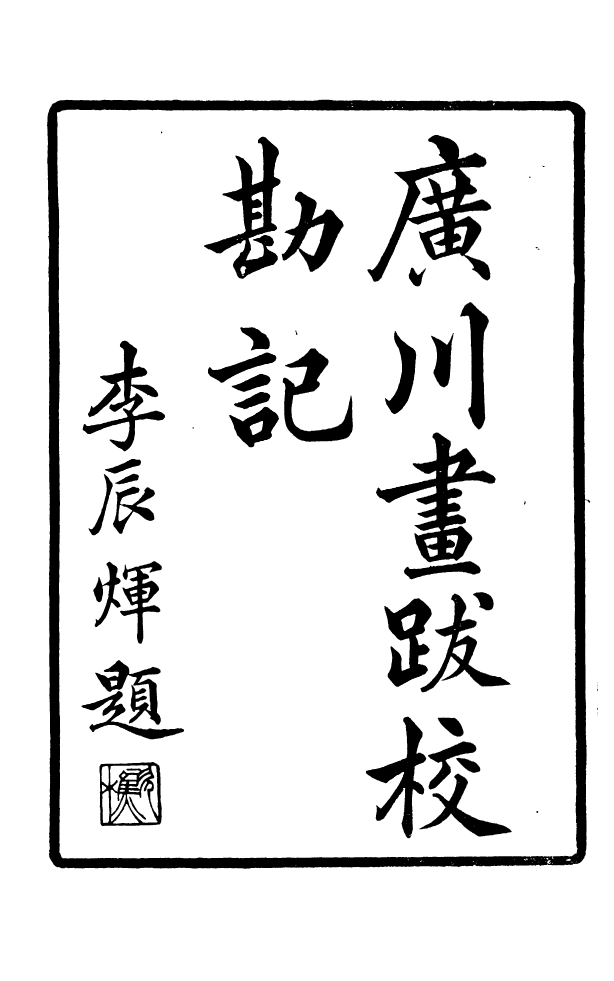 廣川畫跋校
勘記
李辰煇題